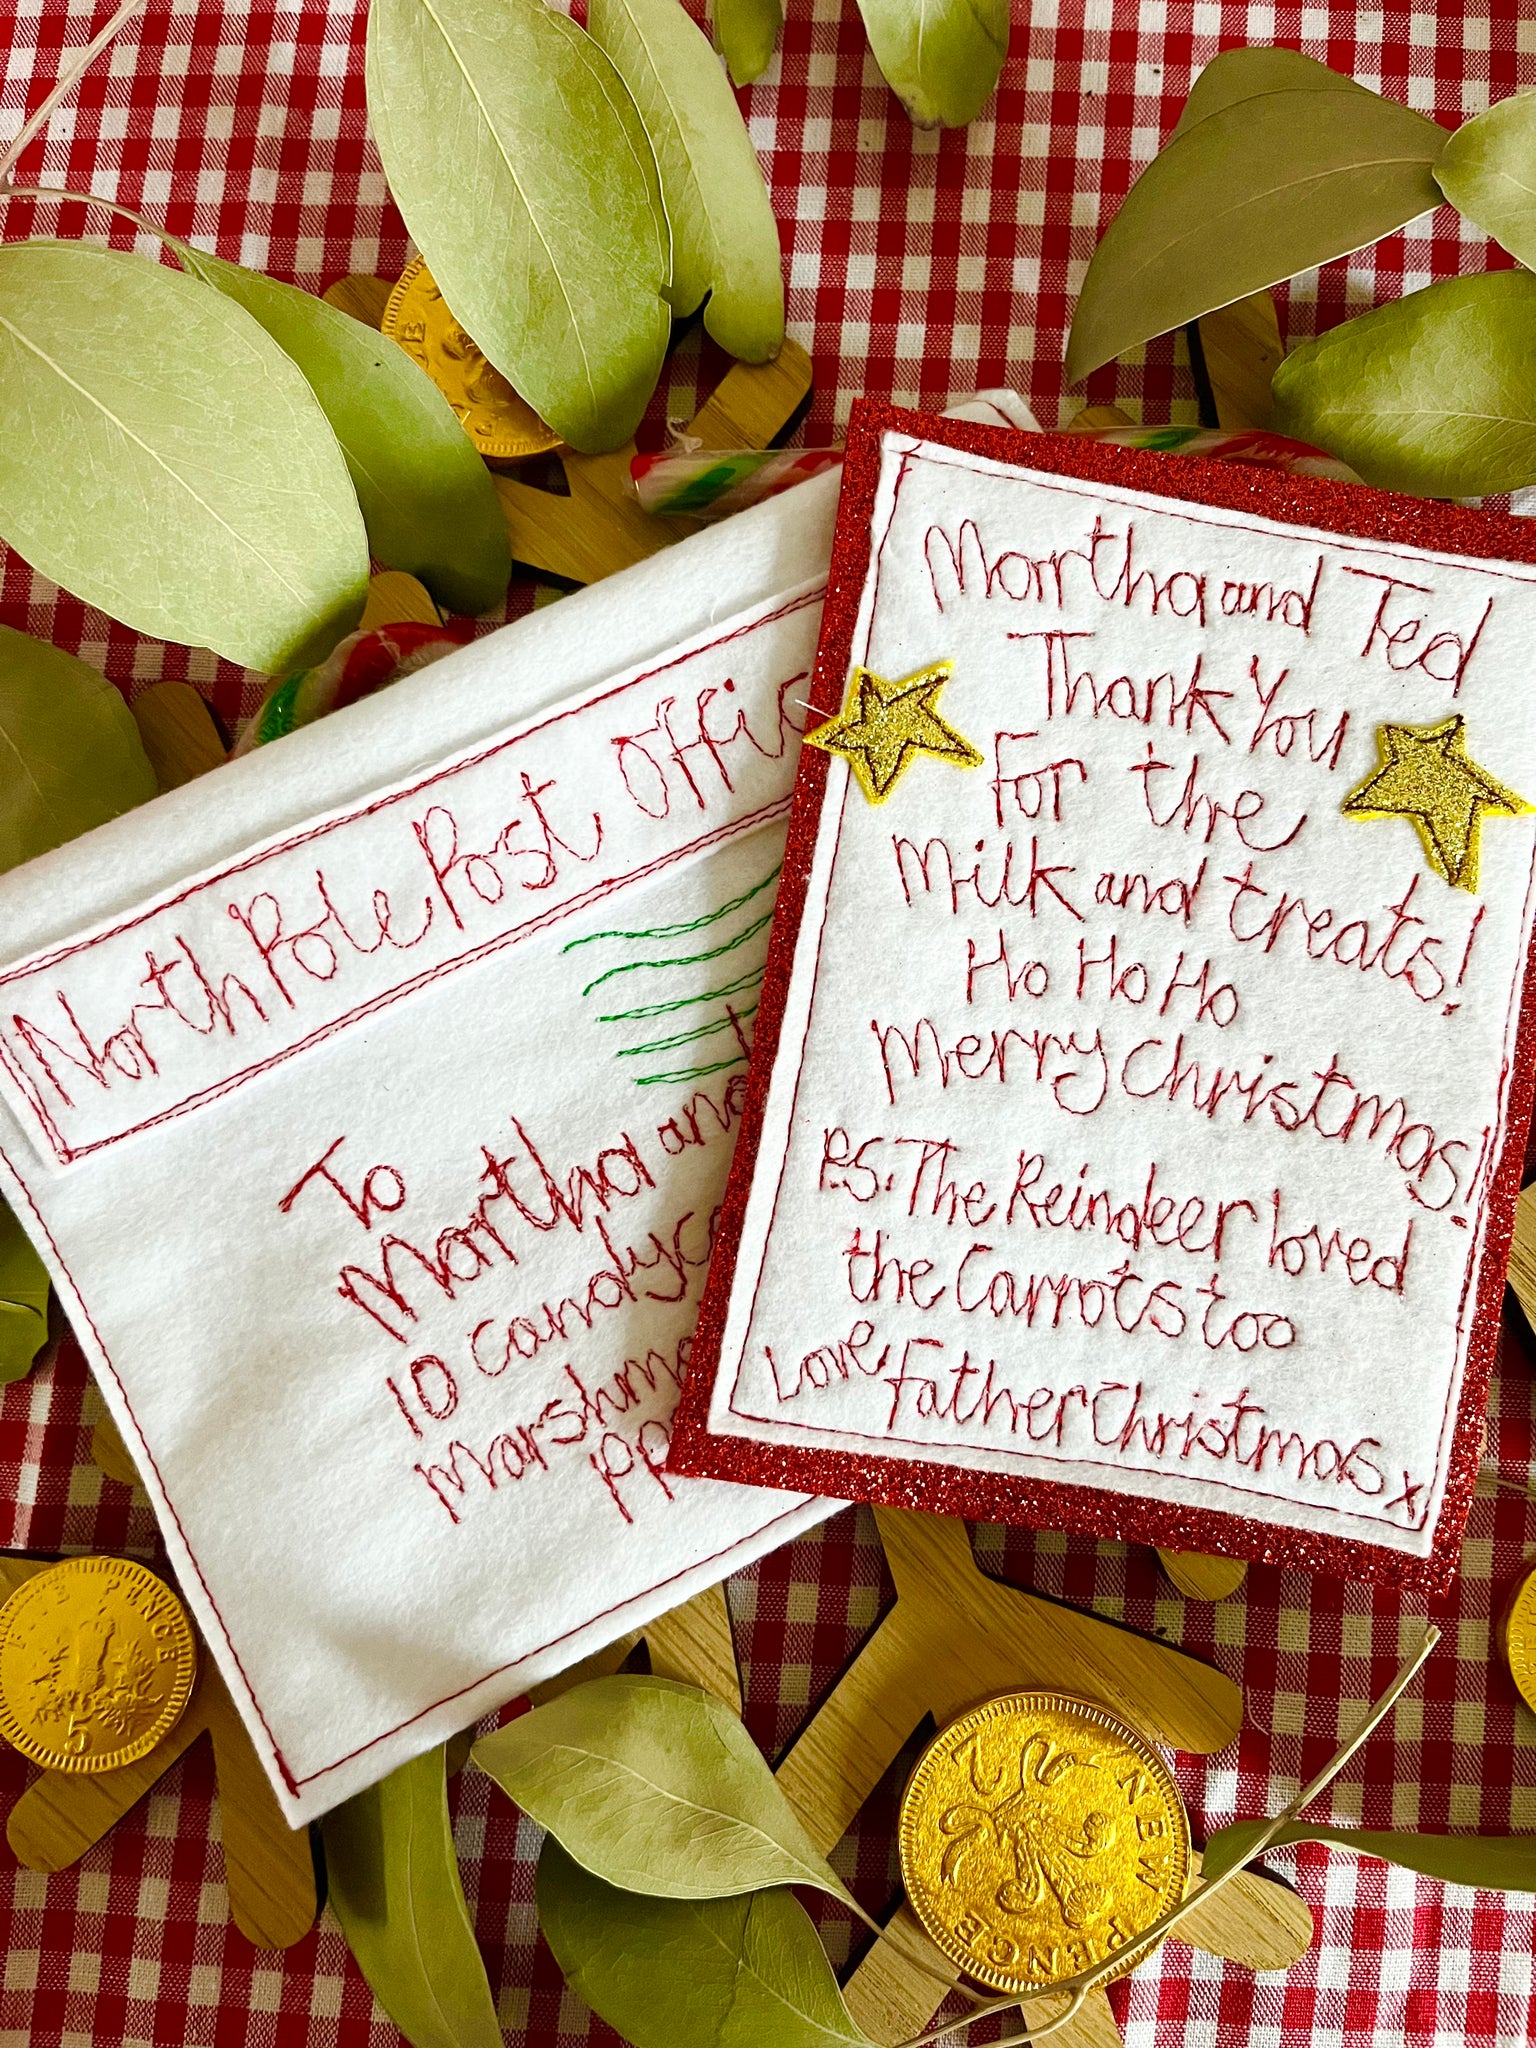 North Pole Post Offic
To
Martha and
10 Candyc
Marshm
PP
Martha and Ted
Thank You
For the
Milk and treats!
Ho Ho Ho
Merry Christmas!
P.S. The Reindeer loved
the Carrots too
Love, Father Christmas x
PENCE
5
2
NEW
PENCE